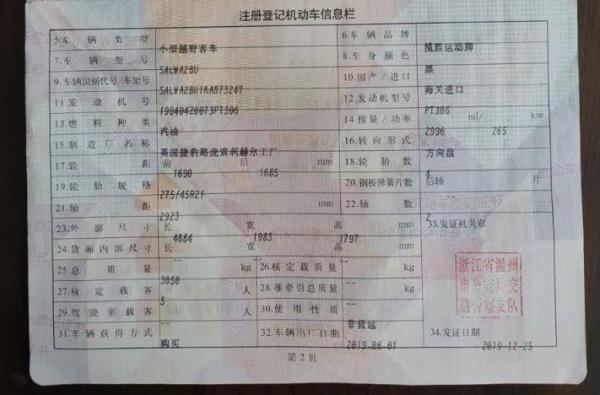 注册登记机动车信息栏
5.车辆类型 小型越野客车 6.车辆品牌 揽胜运动牌
7.车辆型号 SALWA2BU 8.车身颜色 黑
9.车辆识别代号/车架号 SALWA2BU1KA873247 10.国产/进口 海关进口
11.发动机号 190404Z0073PT306 12.发动机型号 PT306
13.燃料种类 汽油 14.排量/功率 2996 ml/ 265 kw
15.制造厂名称 英国捷豹路虎索利赫尔工厂 16.转向形式 方向盘
17.轮距 前 1690 后 1685 mm 18.轮胎数 4
19.轮胎规格 275/45R21 20.钢板弹簧片数 后轴 -- 片
21.轴距 2923 mm 22.轴数 2
23.外廓尺寸 长 4884 宽 1983 高 1797 mm 33.发证机关章
24.货厢内部尺寸 长 -- 宽 -- 高 -- mm
25.总质量 3050 kg 26.核定载质量 -- kg
27.核定载客 5 人 28.准牵引总质量 -- kg
29.驾驶室载客 -- 人 30.使用性质 非营运
31.车辆获得方式 购买 32.车辆出厂日期 2019-06-01 34.发证日期 2019-12-25
浙江省温州
市公安局交
通警察支队
第2页